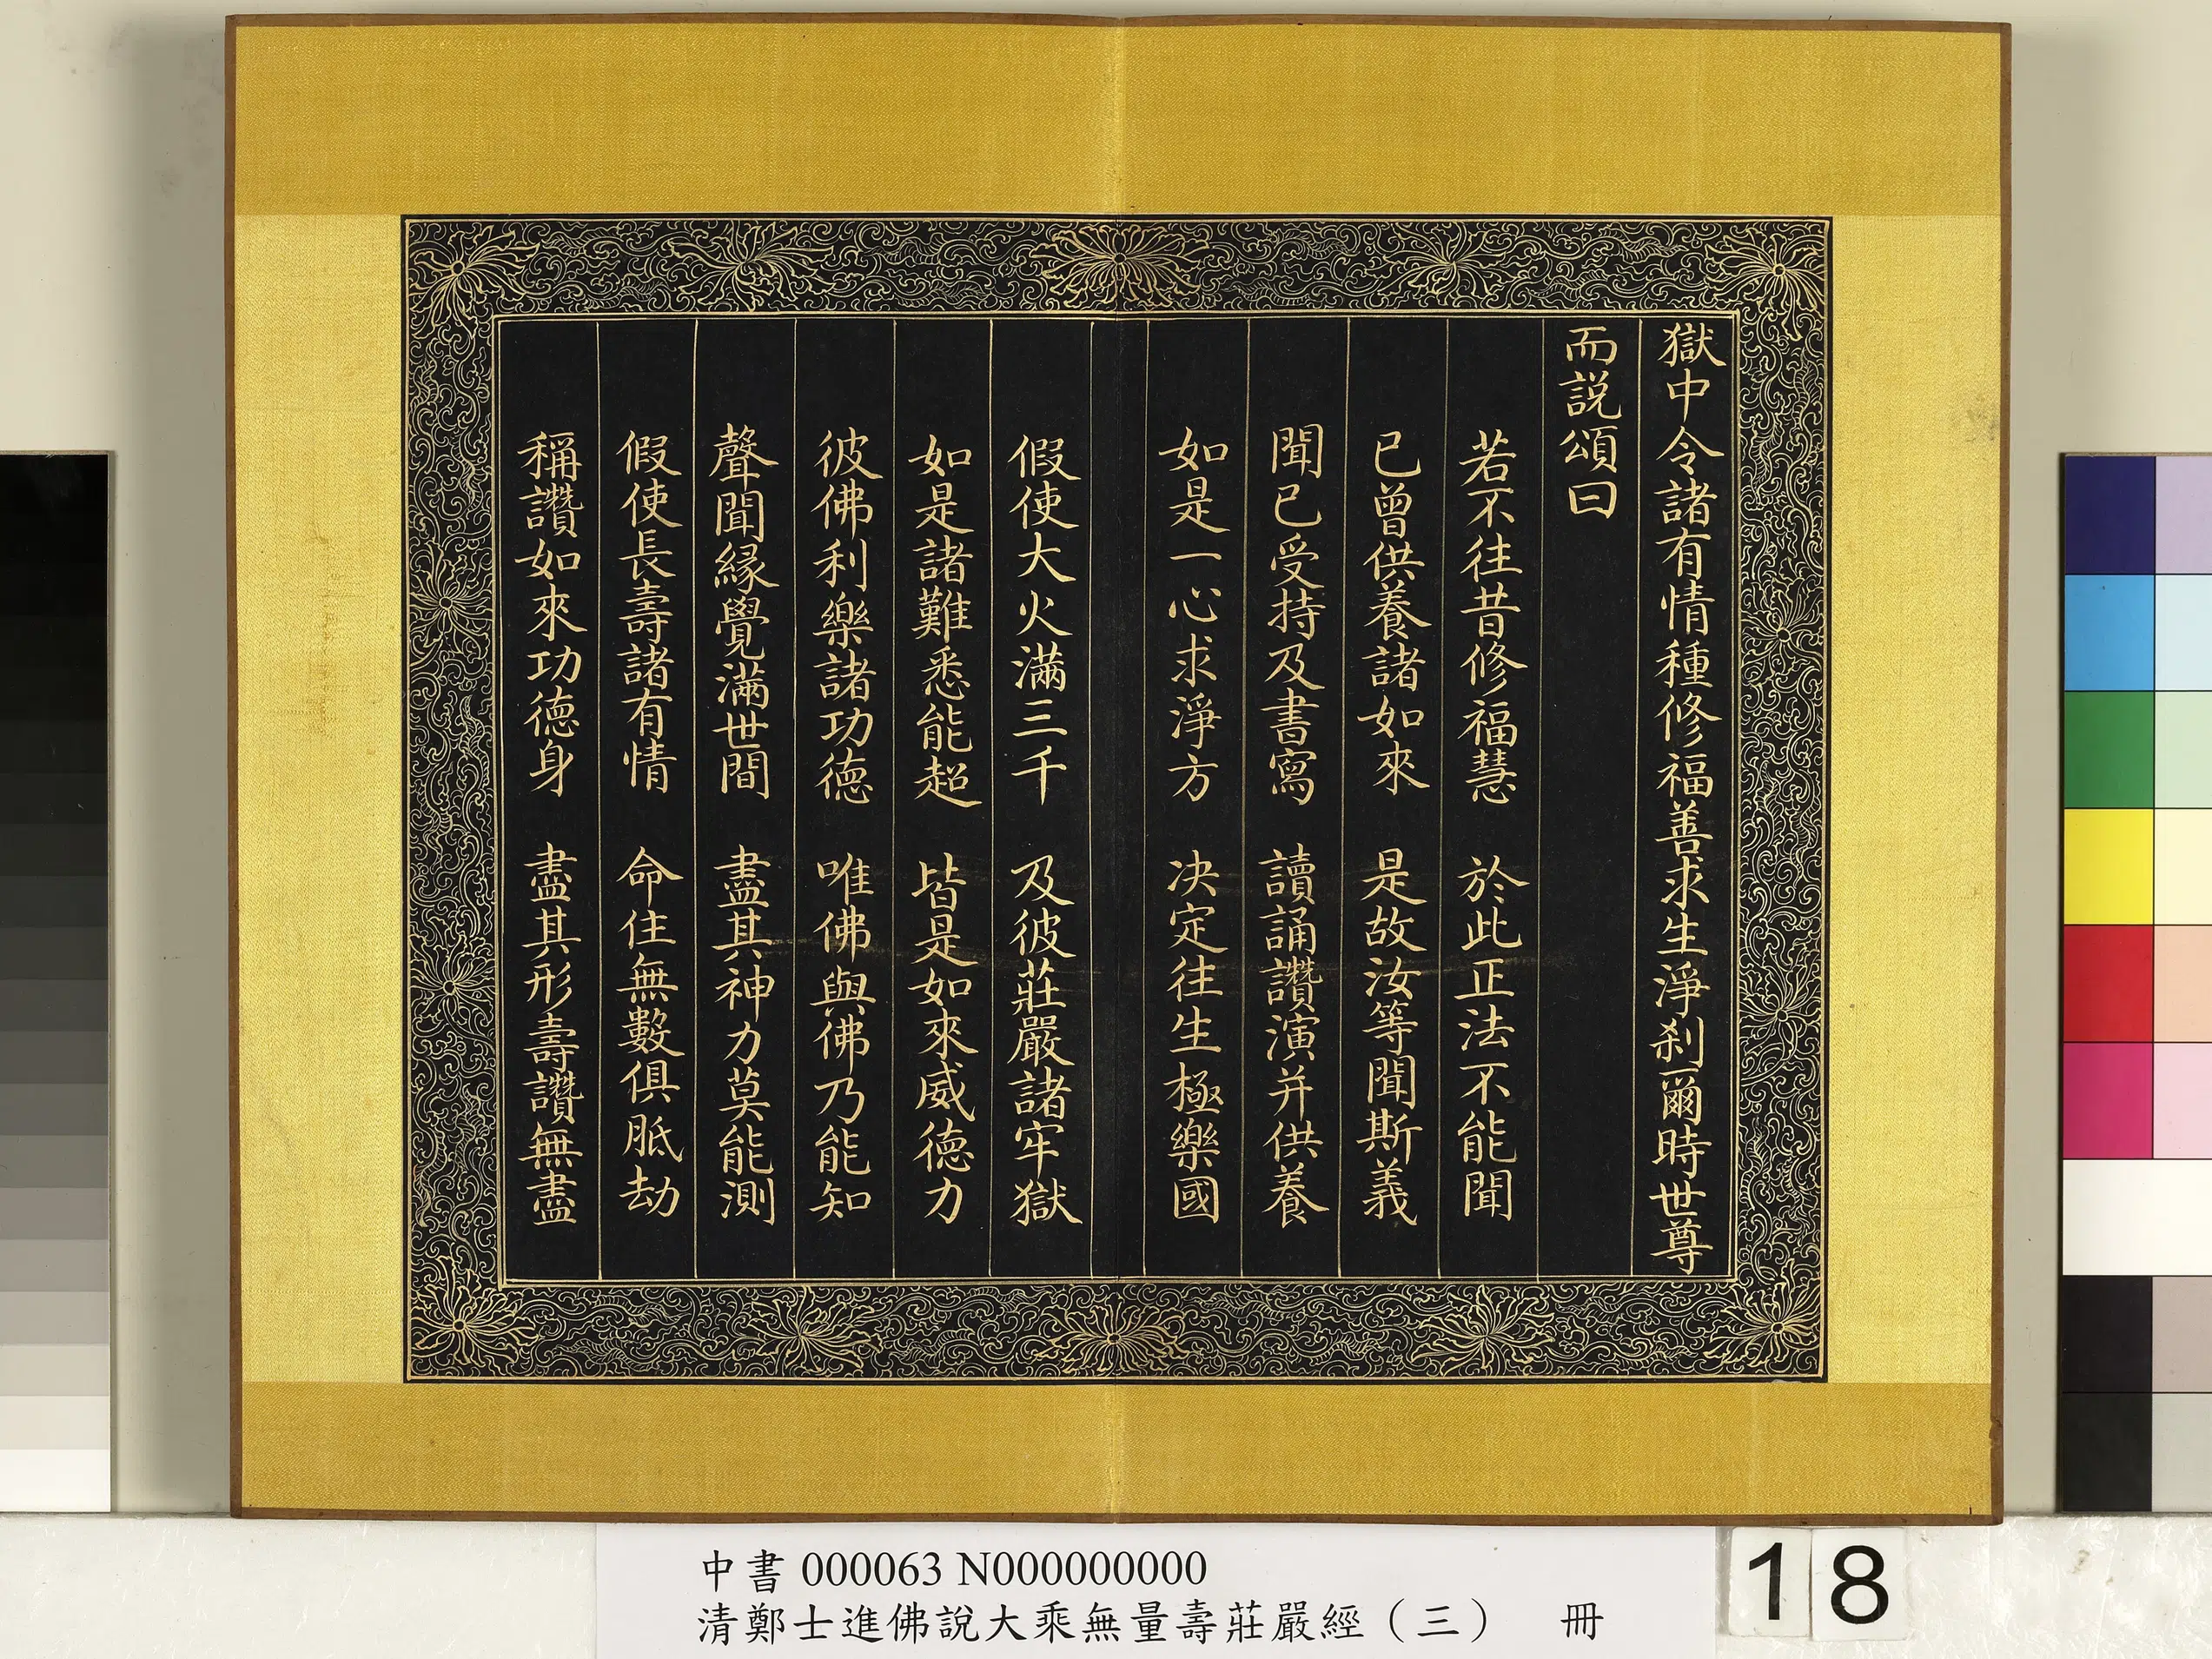 獄中令諸有情種修福善求生淨刹爾時世尊
而説頌曰
若不往昔修福慧　於此正法不能聞
已曾供養諸如來　是故汝等聞斯義
聞已受持及書寫　讀誦讚演并供養
如是一心求淨方　决定往生極樂國
假使大火滿三千　及彼莊嚴諸牢獄
如是諸難悉能超　皆是如來威德力
彼佛利樂諸功德　唯佛與佛乃能知
聲聞緣覺滿世間　盡其神力莫能測
假使長壽諸有情　命住無數俱胝劫
稱讚如來功德身　盡其形壽讚無盡
中書 000063 N000000000
清鄭士進佛說大乘無量壽莊嚴經（三）　冊
18